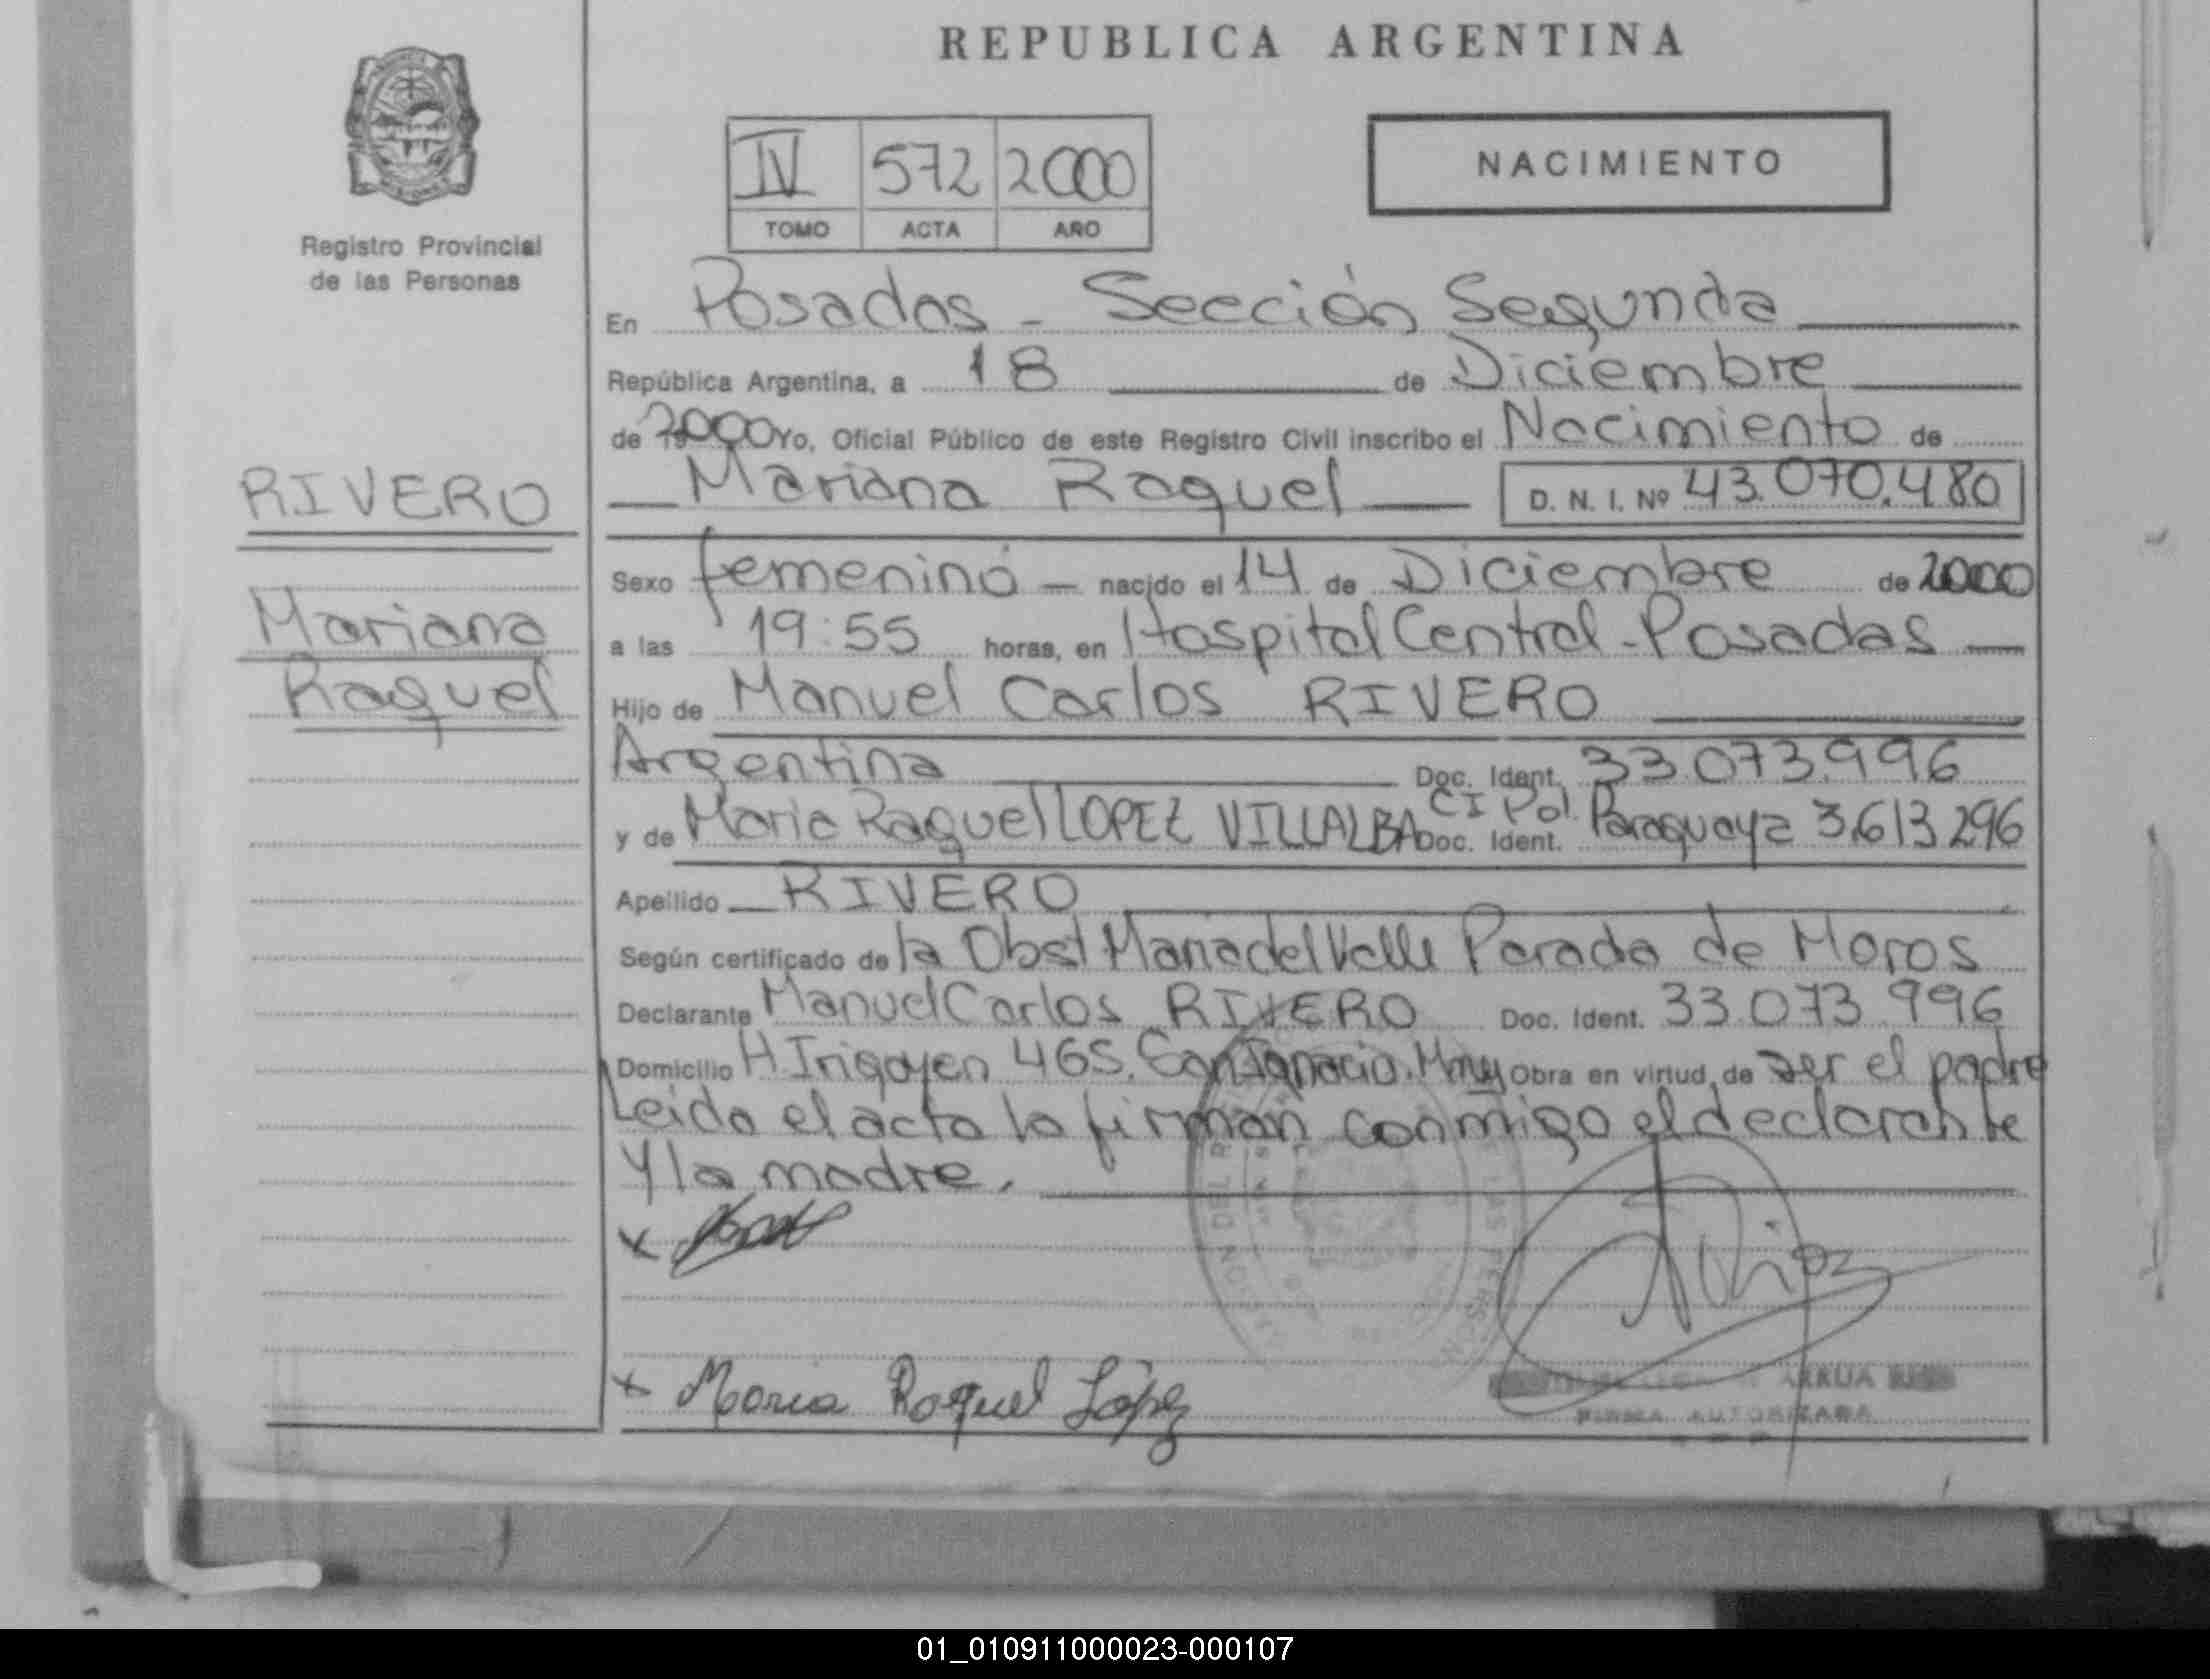 REPUBLICA ARGENTINA
Registro Provincial
de las Personas
IV 572 2000
TOMO ACTA AÑO
NACIMIENTO
En Posadas - Sección Segunda
República Argentina, a 18 de Diciembre
de 2000 Yo, Oficial Público de este Registro Civil inscribo el Nacimiento de
Mariana Raquel D. N. I. Nº 43.070.480
RIVERO
Mariana
Raquel
Sexo femenino nacido el 14 de Diciembre de 2000
a las 19:55 horas, en Hospital Central - Posadas
Hijo de Manuel Carlos RIVERO
Argentina Doc. Ident. 33.073.996
y de Maria Raquel LOPEZ VILLALBA Doc. Ident. CI Pol. Paraguaya 3.613.296
Apellido RIVERO
Según certificado de la Obst Maria del Valle Parada de Moros
Declarante Manuel Carlos RIVERO Doc. Ident. 33.073.996
Domicilio H. Irigoyen 465. San Ignacio. Mnes Obra en virtud de ser el padre
Leido el acta la firman conmigo el declarante
y la madre.
x
x Maria Raquel López
ARRUA
FIRMA AUTORIZADA
01_010911000023-000107